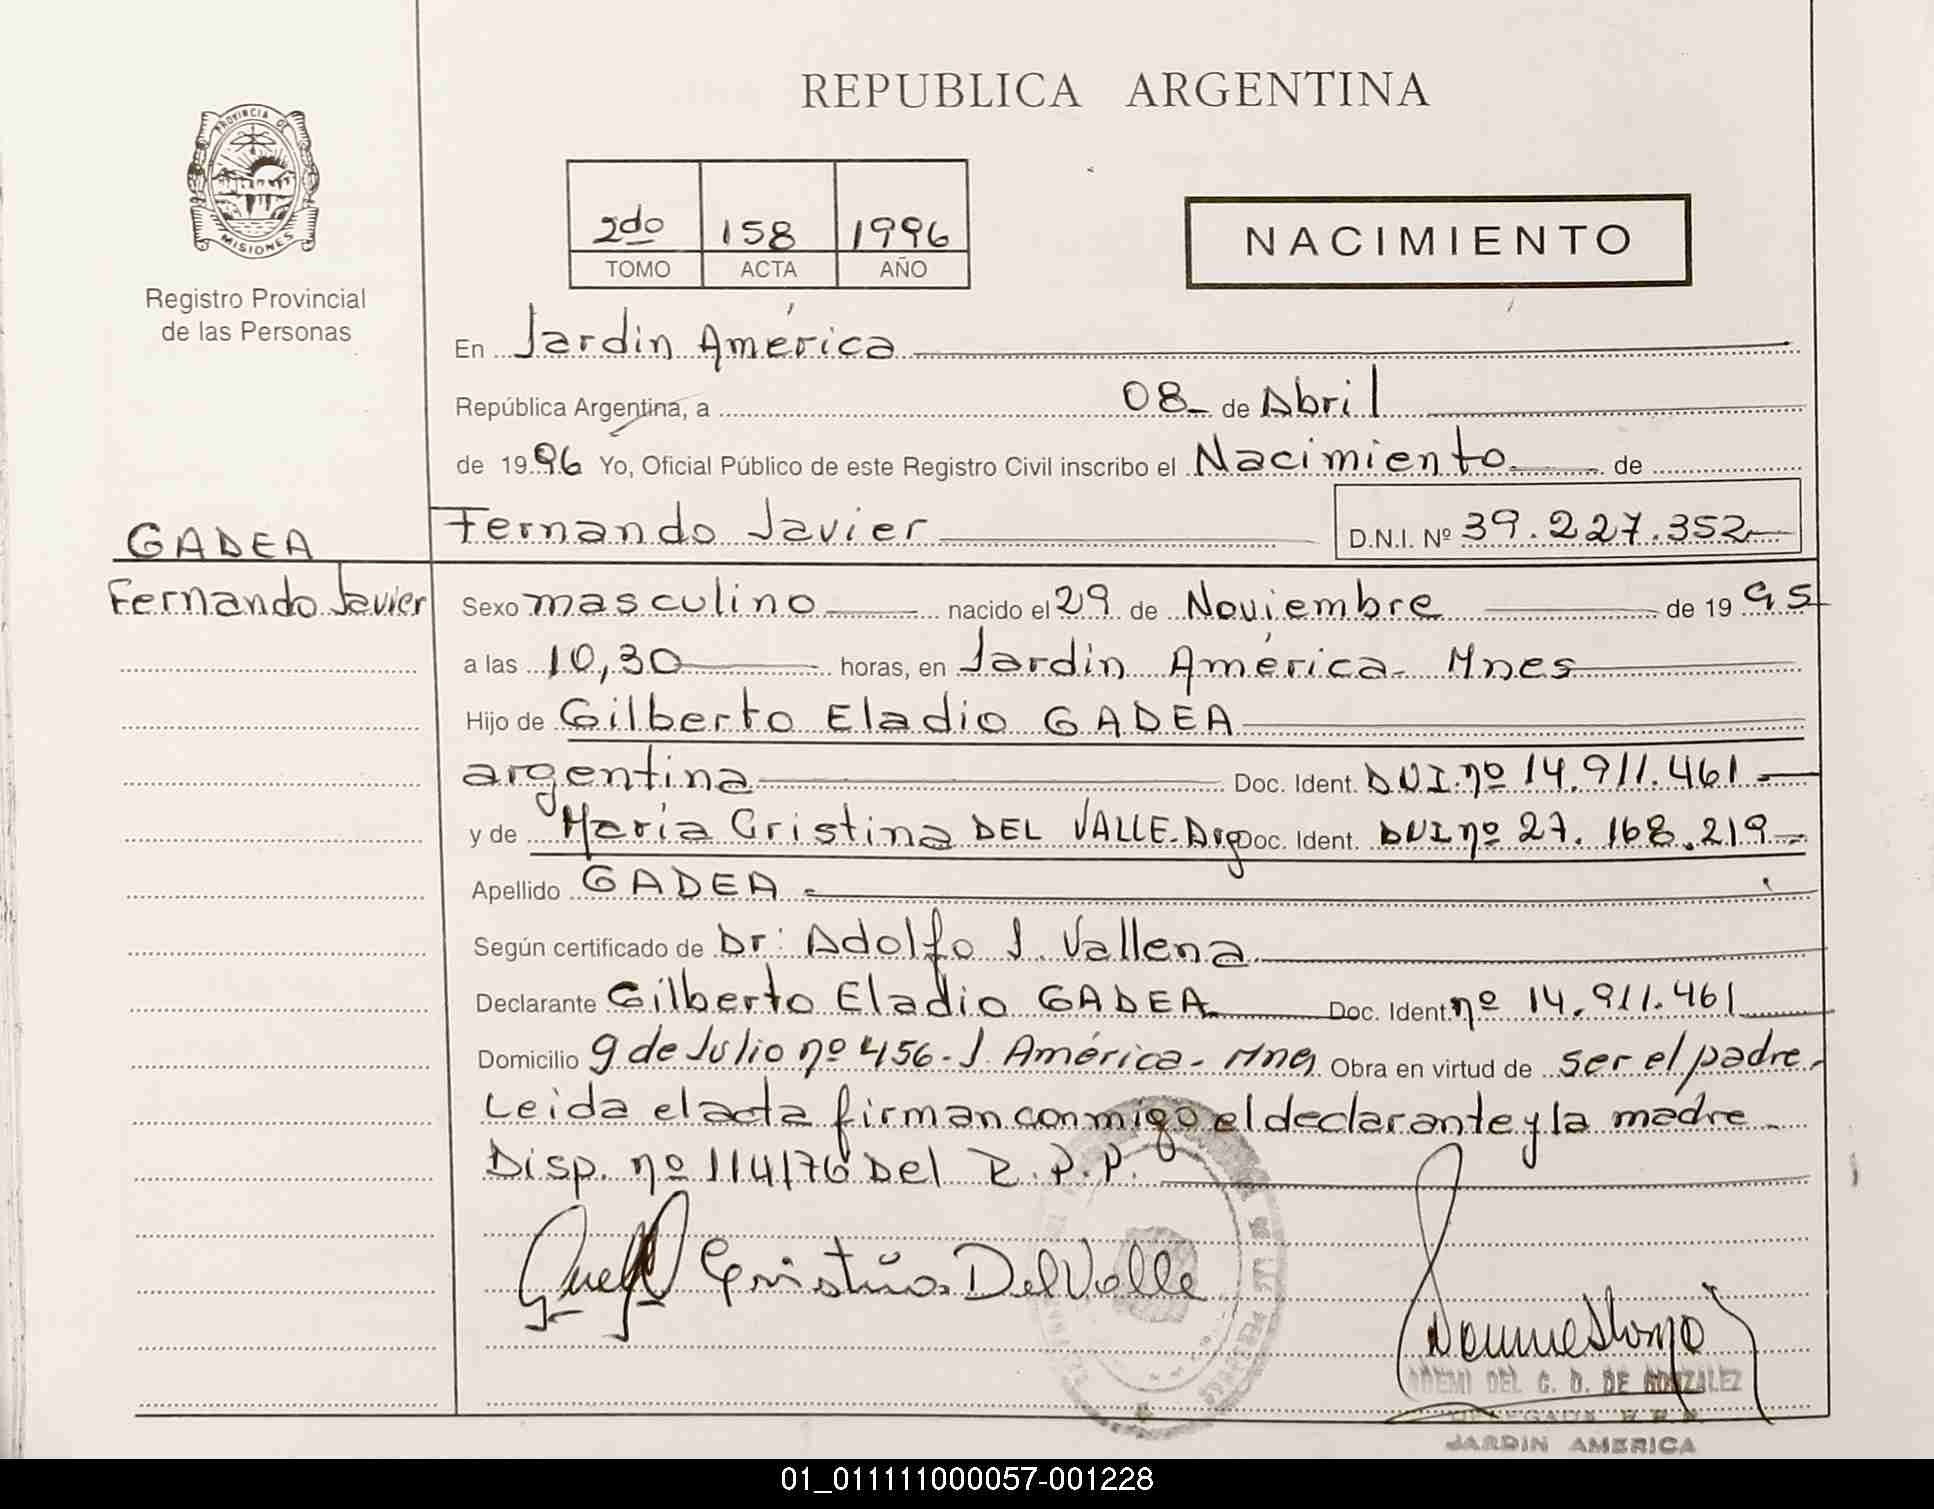 REPUBLICA ARGENTINA
PROVINCIA DE
MISIONES
Registro Provincial
de las Personas
2do 158 1996
TOMO ACTA AÑO
NACIMIENTO
En Jardín América
República Argentina, a 08 de Abril
de 1996 Yo, Oficial Público de este Registro Civil inscribo el Nacimiento de
GADEA
Fernando Javier
Fernando Javier D.N.I. Nº 39.227.352
Sexo masculino nacido el 29 de Noviembre de 1995
a las 10,30 horas, en Jardin América- Mnes
Hijo de Gilberto Eladio GADEA
argentina Doc. Ident. DUI.nº 14.911.461
y de María Cristina DEL VALLE-Arg Doc. Ident. DUI nº 27.168.219
Apellido GADEA
Según certificado de Dr: Adolfo J. Vallena
Declarante Gilberto Eladio GADEA Doc. Ident. nº 14.911.461
Domicilio 9 de Julio nº 456- J. América- Obra en virtud de ser el padre.
Leida el acta firman conmigo el declarante y la madre.
Disp. nº 114/76 Del R.P.P.
Cristina Del Valle
DEL C. D. DE GONZALEZ
JARDIN AMERICA
01_011111000057-001228